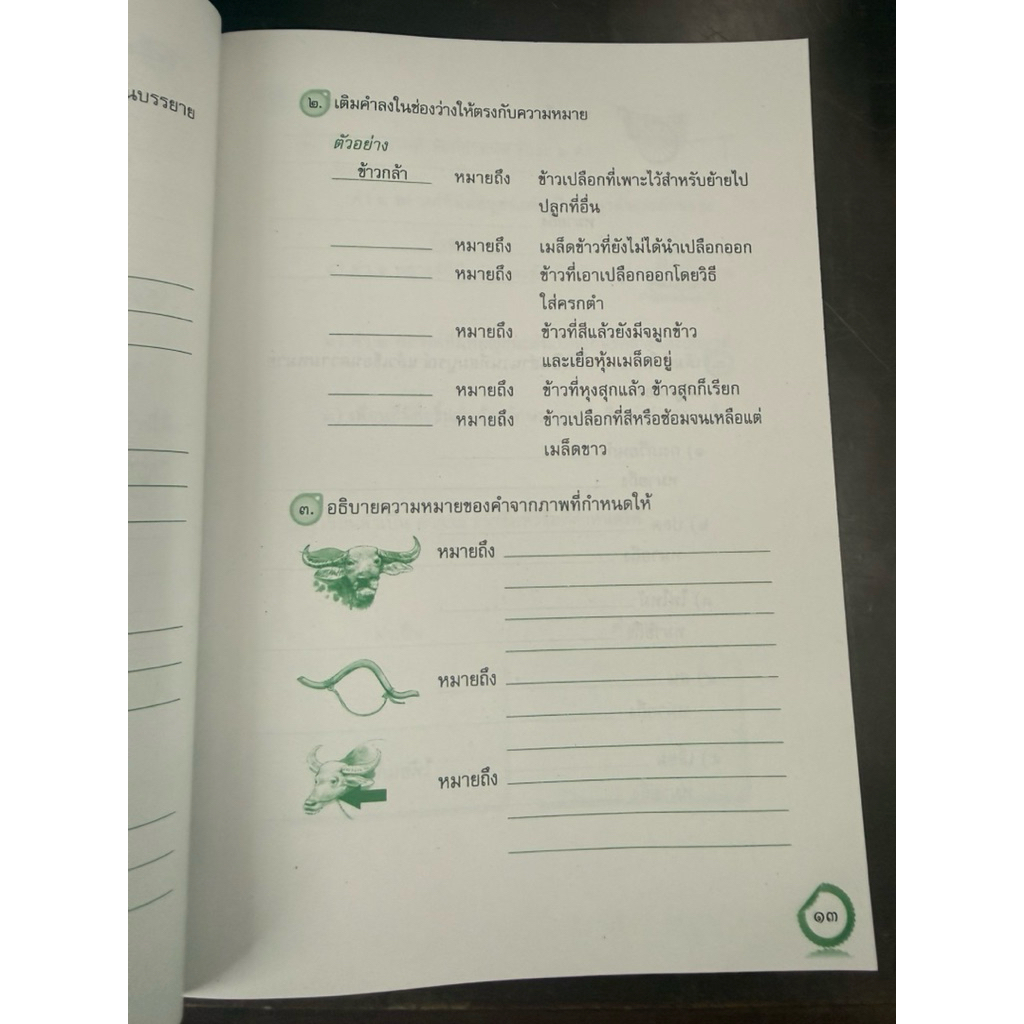 นบรรยาย
๒. เติมคำลงในช่องว่างให้ตรงกับความหมาย
ตัวอย่าง
ข้าวกล้า หมายถึง ข้าวเปลือกที่เพาะไว้สำหรับย้ายไป
ปลูกที่อื่น
หมายถึง เมล็ดข้าวที่ยังไม่ได้นำเปลือกออก
หมายถึง ข้าวที่เอาเปลือกออกโดยวิธี
ใส่ครกตำ
หมายถึง ข้าวที่สีแล้วยังมีจมูกข้าว
และเยื่อหุ้มเมล็ดอยู่
หมายถึง ข้าวที่หุงสุกแล้ว ข้าวสุกก็เรียก
หมายถึง ข้าวเปลือกที่สีหรือซ้อมจนเหลือแต่
เมล็ดขาว
๓. อธิบายความหมายของคำจากภาพที่กำหนดให้
หมายถึง
หมายถึง
หมายถึง
๑๓